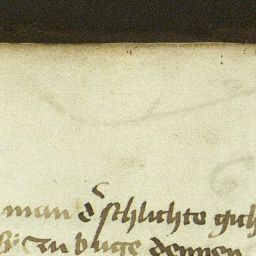 man d̾ schlichte gich
sÿ zu buge dennen